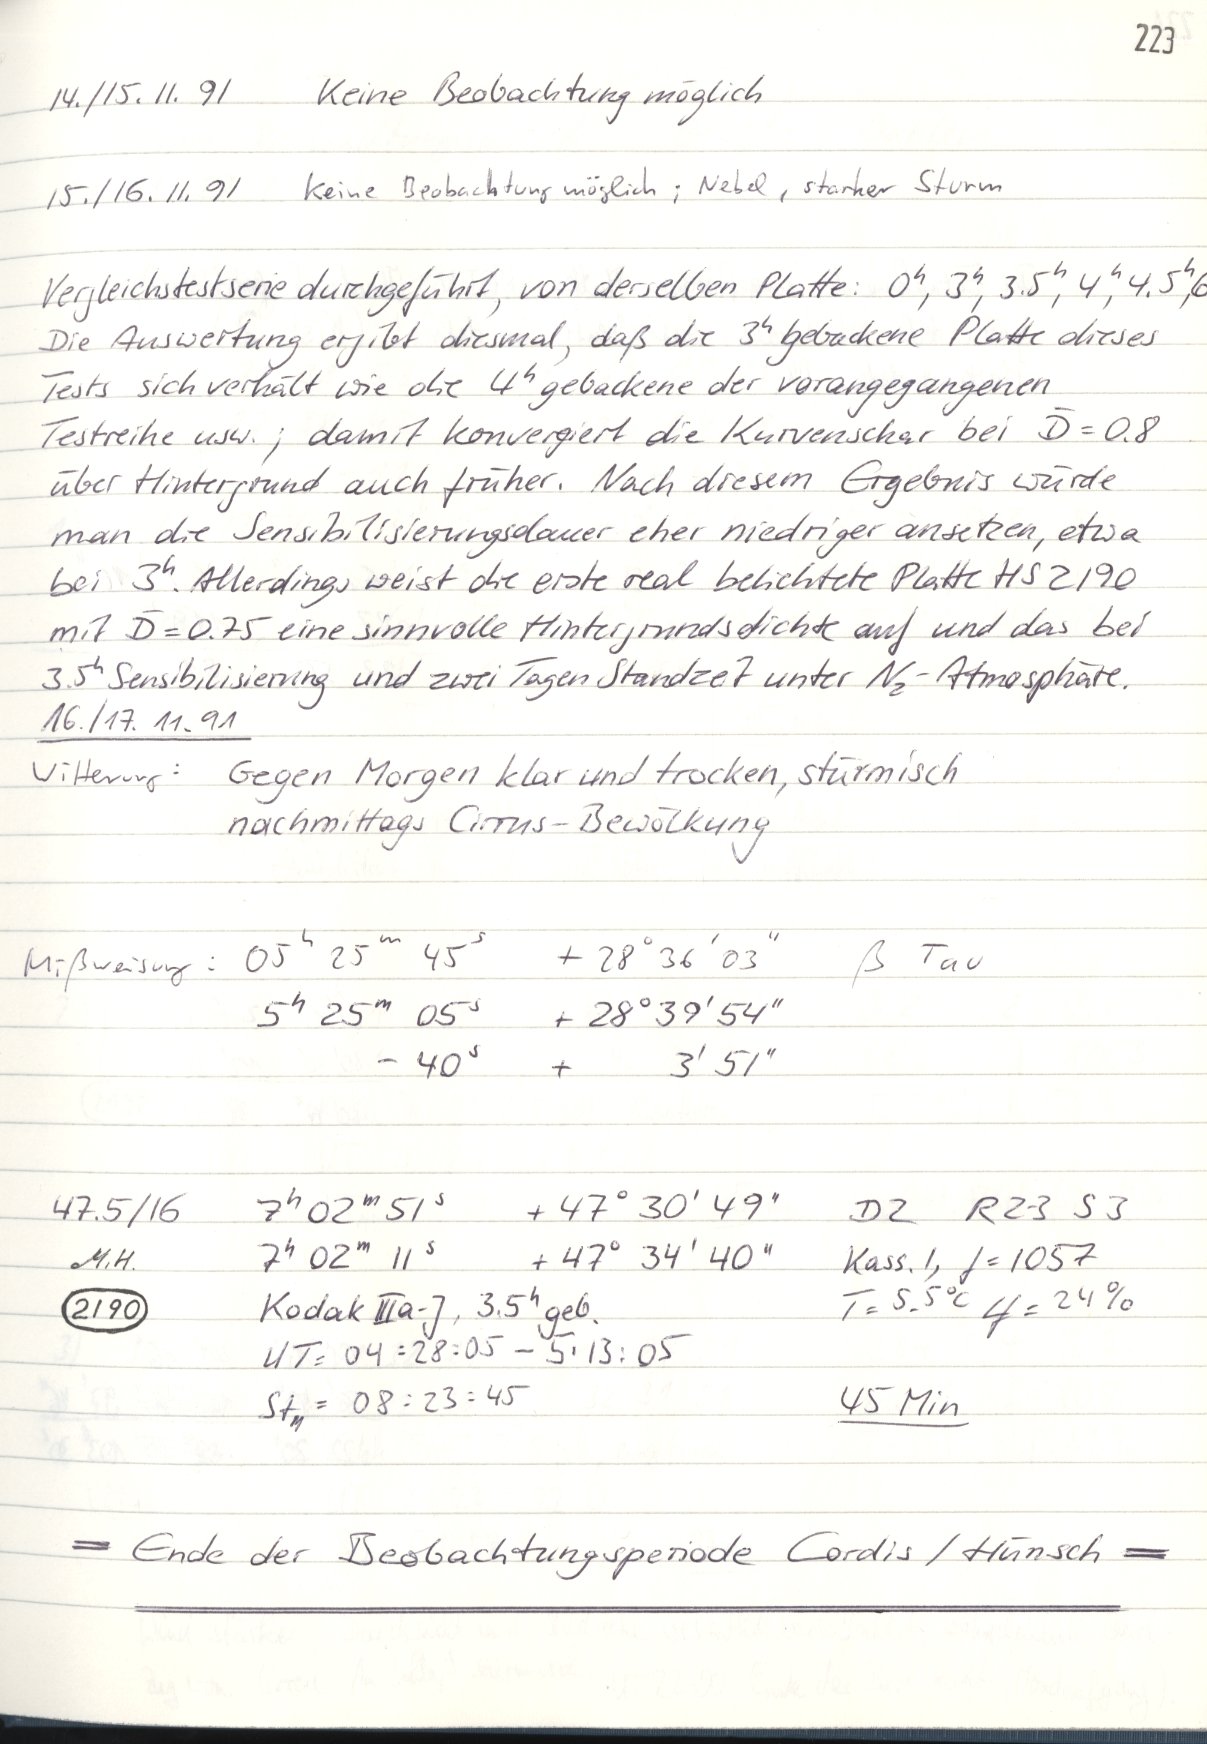 223
14./15. 11. 91 Keine Beobachtung möglich
15./16. 11. 91 Keine Beobachtung möglich ; Nebel, starker Sturm
Vergleichstestserie durchgeführt, von derselben Platte: 0ʰ, 3ʰ, 3.5ʰ, 4ʰ, 4.5ʰ, 6
Die Auswertung ergibt diesmal, daß die 3ʰ gebackene Platte dieses
Tests sich verhält wie die 4ʰ gebackene der vorangegangenen
Testreihe usw. ; damit konvergiert die Kurvenschar bei D̄ = 0.8
über Hintergrund auch früher. Nach diesem Ergebnis würde
man die Sensibilisierungsdauer eher niedriger ansetzen, etwa
bei 3ʰ. Allerdings weist die erste real belichtete Platte HS 2190
mit D̄ = 0.75 eine sinnvolle Hintergrundsdichte auf und das bei
3.5ʰ Sensibilisierung und zwei Tagen Standzeit unter N₂-Atmosphäre.
16./17. 11. 91
Witterung: Gegen Morgen klar und trocken, stürmisch
nachmittags Cirrus-Bewölkung
Mißweisung: 05ʰ 25ᵐ 45ˢ + 28° 36' 03" β Tau
5ʰ 25ᵐ 05ˢ + 28° 39' 54"
- 40ˢ + 3' 51"
47.5/16 7ʰ 02ᵐ 51ˢ + 47° 30' 49" D2 R23 S3
M.H. 7ʰ 02ᵐ 11ˢ + 47° 34' 40" Kass. 1, f = 1057
2190 Kodak IIIa-J, 3.5ʰ geb. T = 5.5°C φ = 24%
UT = 04:28:05 - 5:13:05
Stₘ = 08:23:45 45 Min
= Ende der Beobachtungsperiode Cordis / Hünsch =